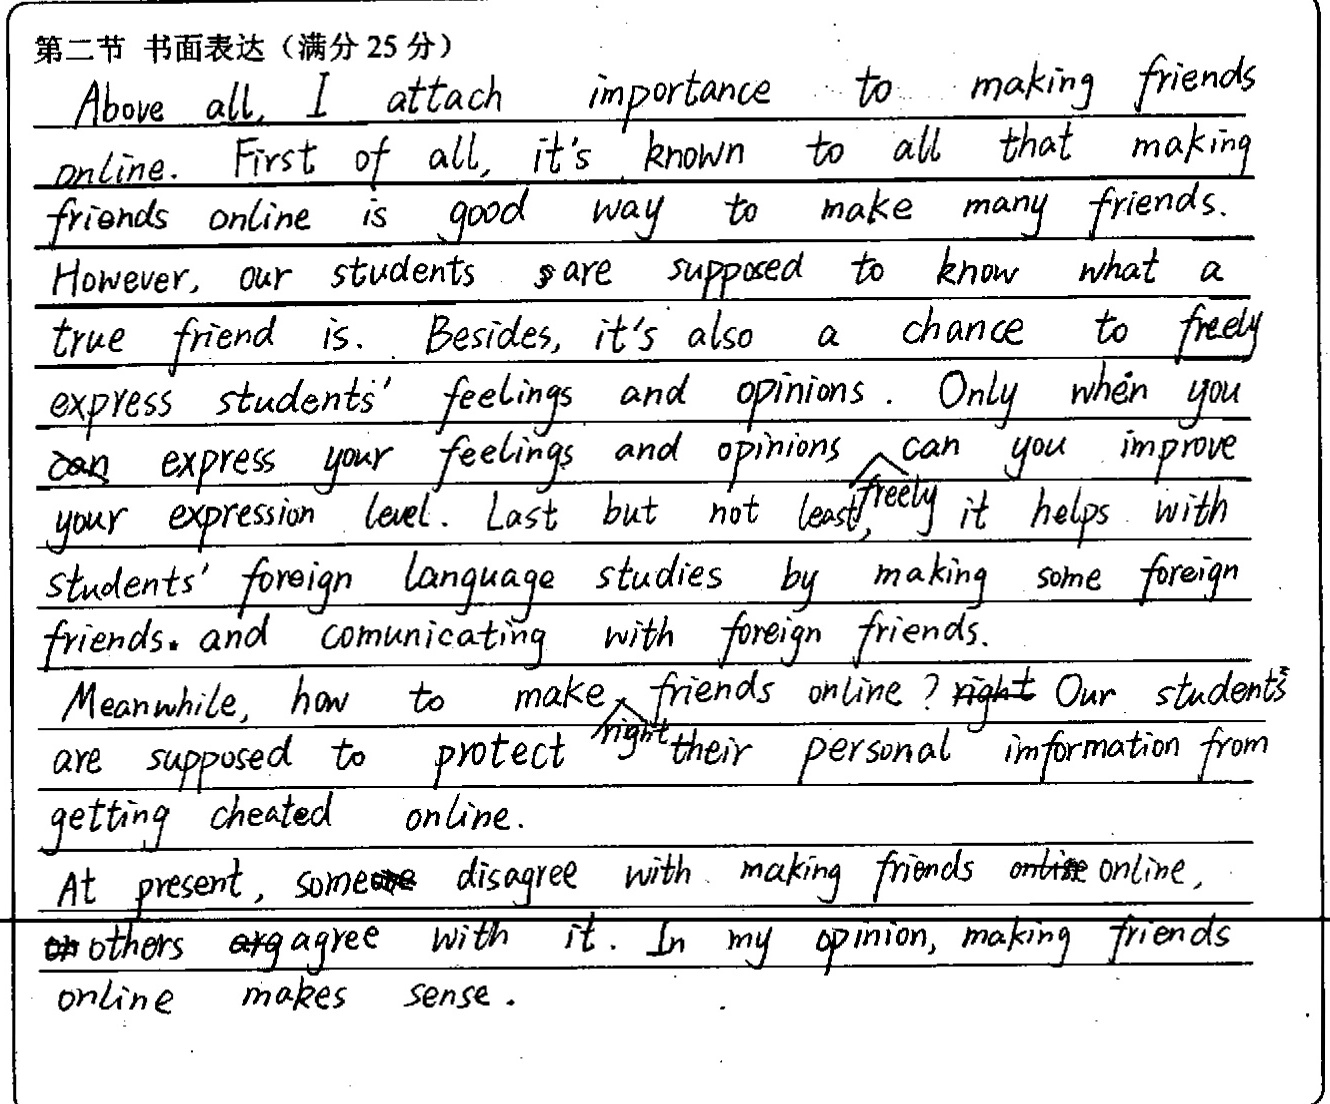 第二节 书面表达（满分 25 分）
Above all, I attach importance to making friends
online. First of all, it's known to all that making
friends online is good way to make many friends.
However, our students are supposed to know what a
true friend is. Besides, it's also a chance to freely
express students' feelings and opinions. Only when you
express your feelings and opinions freely can you improve
your expression level. Last but not least, it helps with
students' foreign language studies by making some foreign
friends. and comunicating with foreign friends.
Meanwhile, how to make right friends online? Our students
are supposed to protect their personal imformation from
getting cheated online.
At present, some disagree with making friends online,
others agree with it. In my opinion, making friends
online makes sense.